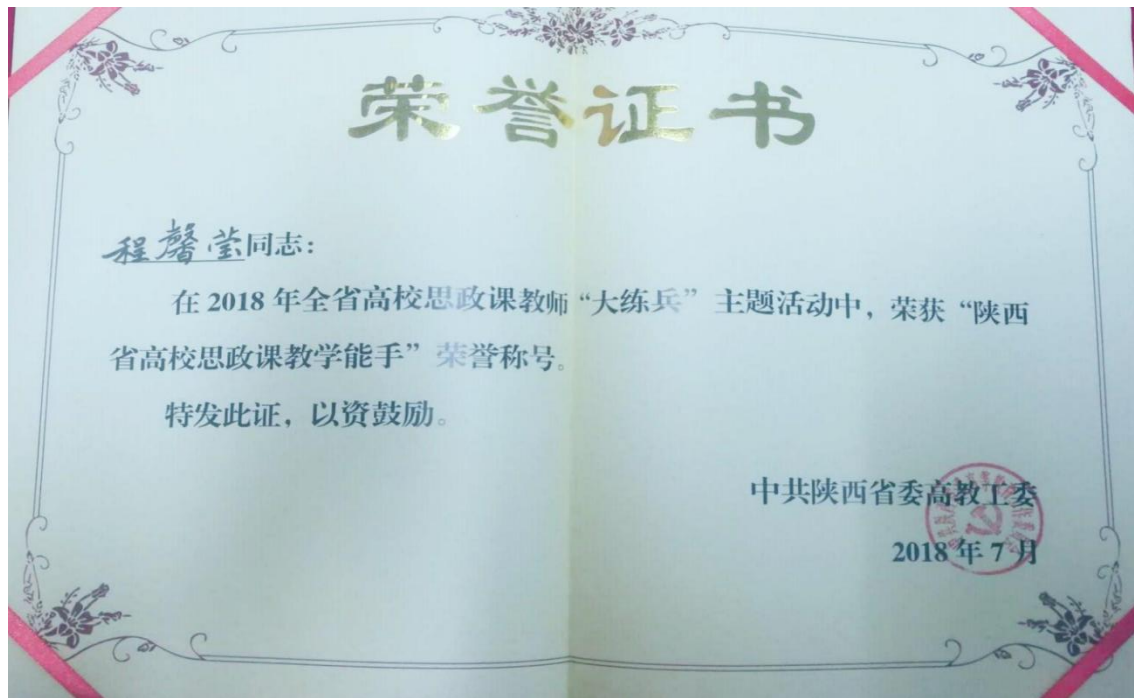 荣誉证书
程馨莹同志：
在 2018 年全省高校思政课教师“大练兵”主题活动中，荣获“陕西
省高校思政课教学能手”荣誉称号。
特发此证，以资鼓励。
中共陕西省委高教工委
2018 年 7 月